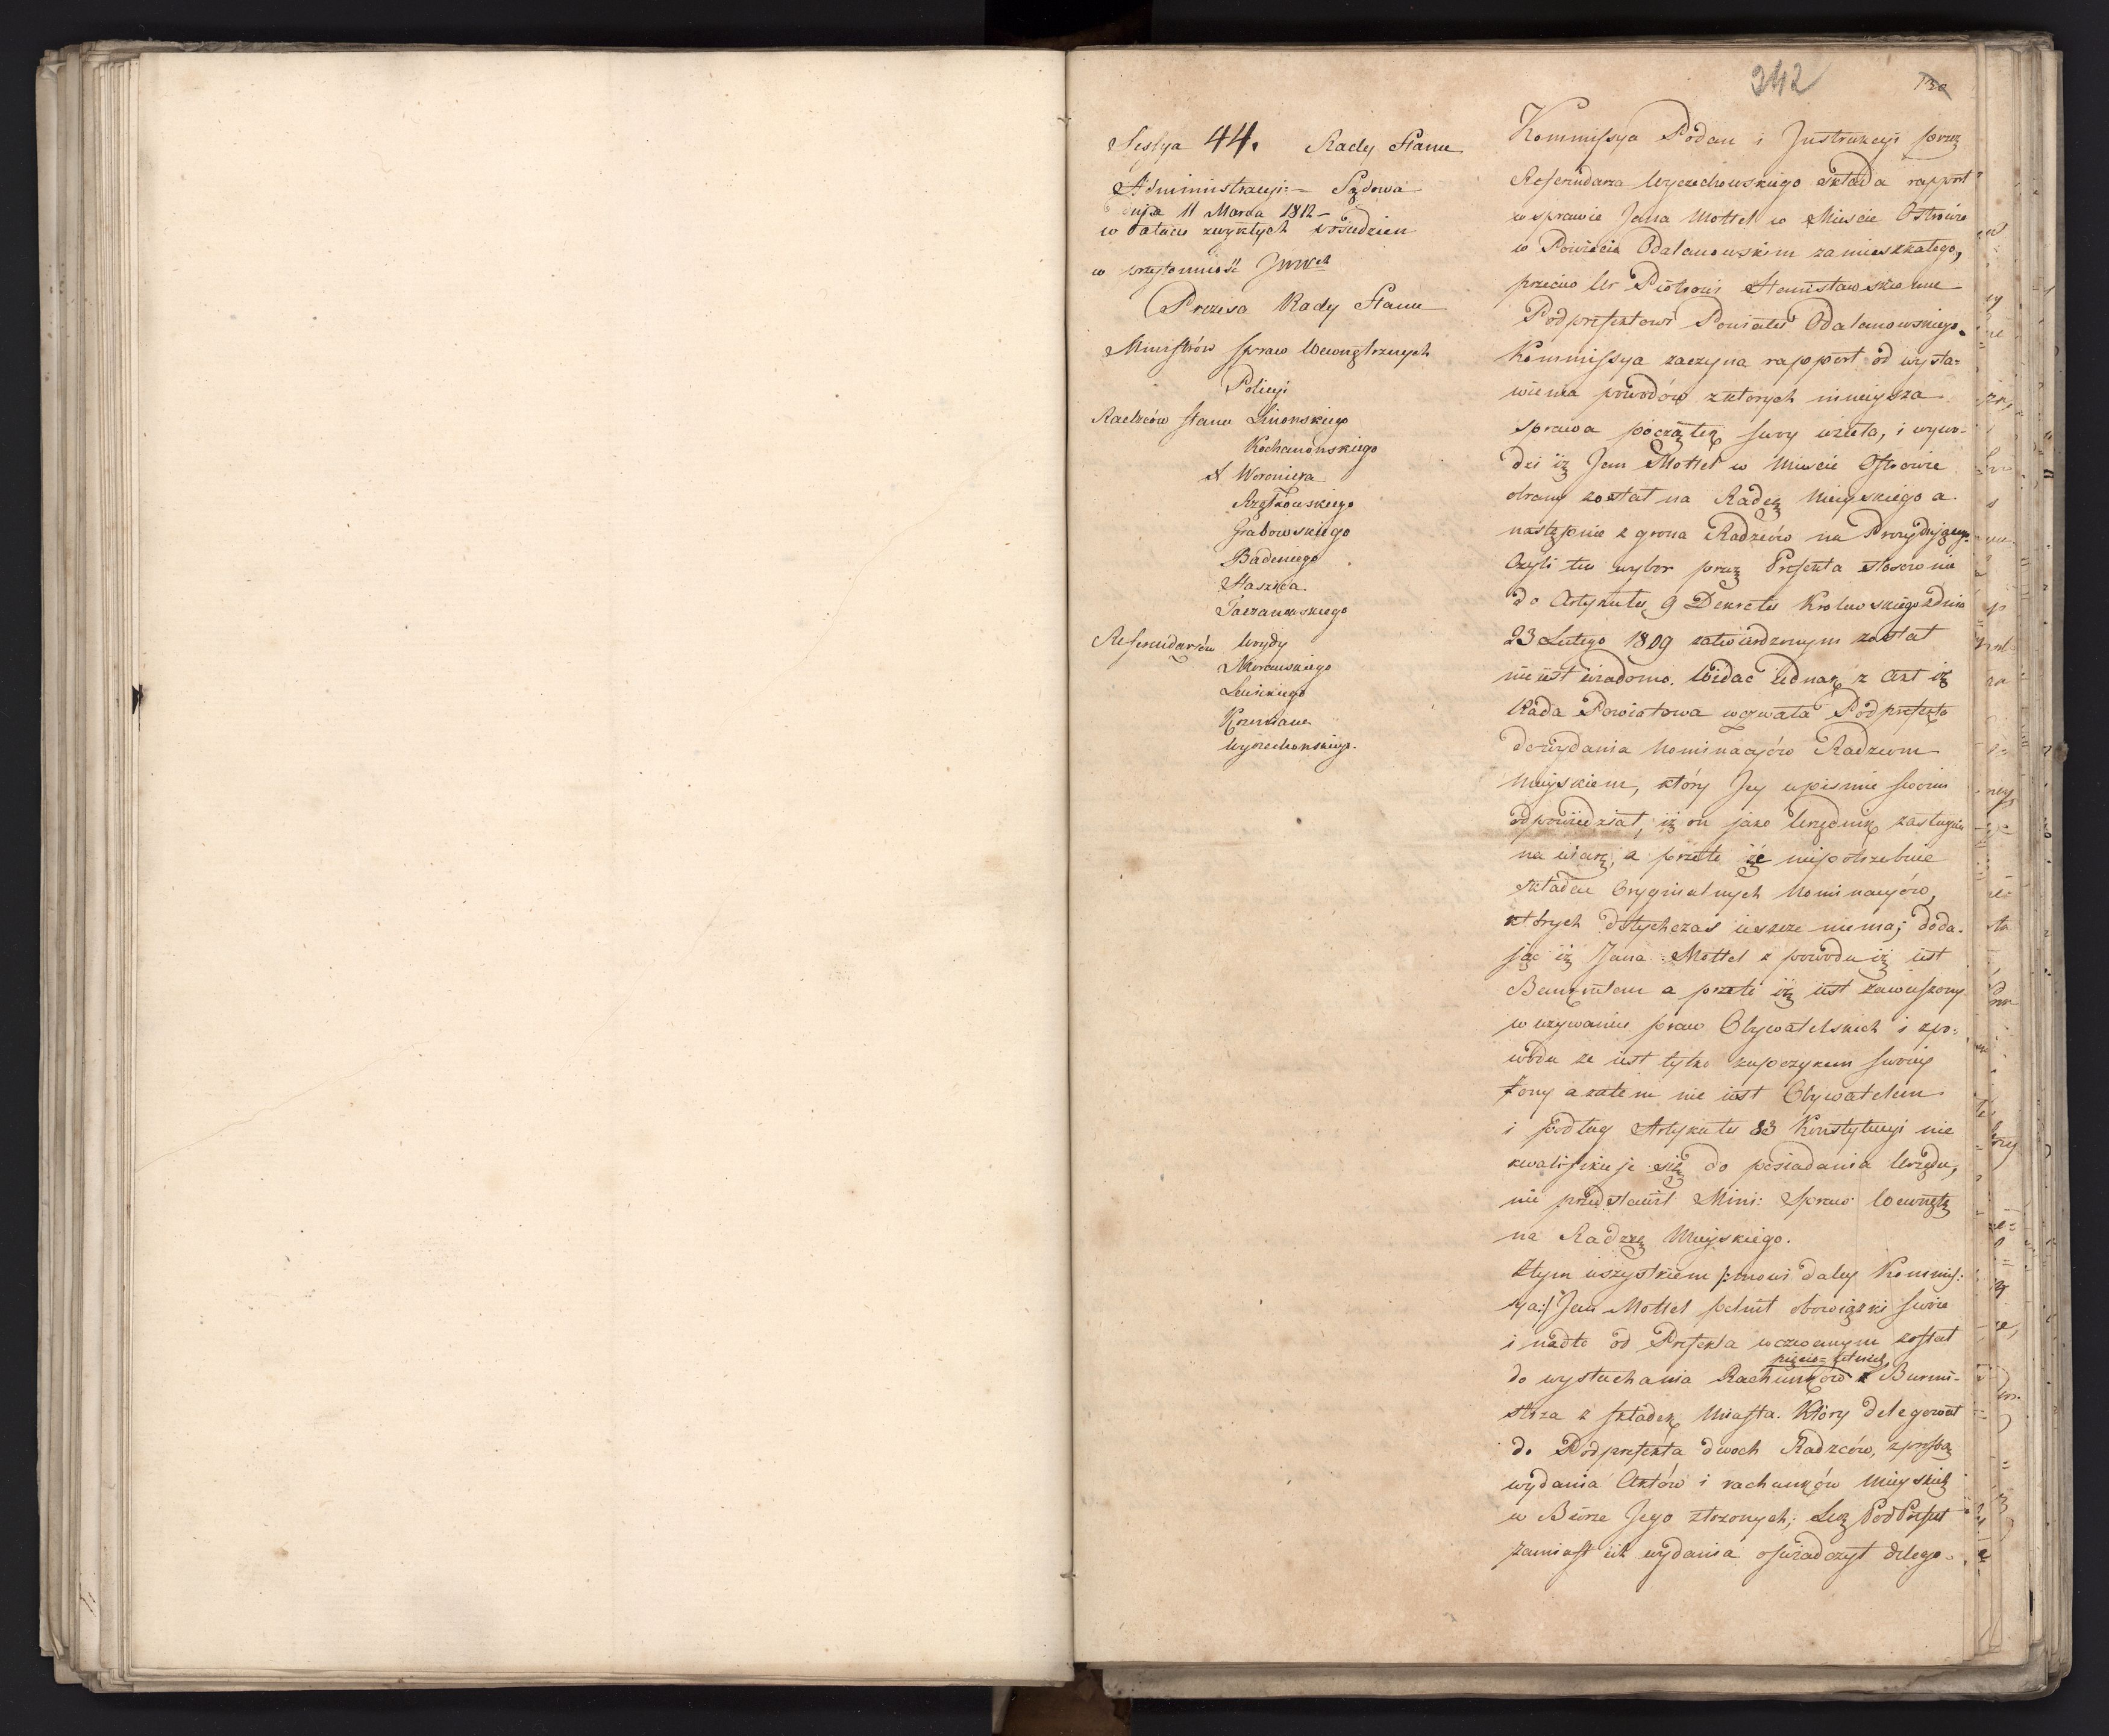 342
Sessya 44. Rady Stanu
Administracyi: = Sądowa
dnia 11 Marca 1812 -
w Pałacu zwykłych posiedzeń
w przytomność JWWch
Prezesa Rady Stanu
Ministrów spraw Wewnętrznych
Policyi
Radzców stanu Linowskiego
Kochanowskiego
X Woronicza
Rzętkowskiego
Grabowskiego
Badeniego
Staszica
Taczanowskiego
Referendarzów Woydy
Morawskiego
Lewickiego
Koźmiana
Wyczechowskiego.
Kommissya Podań i Instrukcyi przez
Referendarza Wyczechowskiego składa rapport
w sprawie Jana Mottel w Mieście Ostrowie
w Powiecie Odalanowskim zamieszkałego,
przeciw Ur Piotrowi Stanisławskiemu
Podprefektowi Powiatu Odalanowskiego.
Kommissya zaczyna rapport od wysta=
wienia powodów z których ninieysza
sprawa początek swóy wzięła, i wywo-
dzi iż Jan Mottel w Mieście Ostrowie
obrany został na Radcę Mieyskiego a
następnie z grona Radzców na Prezyduiącego.
Czyli ten wybor przez Prefekta stosownie
do Artykułu 9 Dekretu Krolewskiego z dnia
23 Lutego 1809 zatwierdzonym został
nie iest wiadomo. Widać iednak z Akt iż
Rada Powiatowa wezwała Podprefekta
do wydania Nominacyów Radzcom
Mieyskiem, który Jey w piśmie swoim
odpowiedział, iż on jako Urzędnik zasługuie
na wiarę, a przeto że niepotrzebnie
składać Oryginalnych Nominacyów,
których dotychczas ieszcze niema; doda-
jąc iż Jana Mottel z powodu iż iest
Bankrutem a przeto iż iest zawieszony
w używaniu praw Obywatelskich i z po-
wodu że iest tylko kupczykiem swoiey
żony a zatem nie iest Obywatelem
i podług Artykułu 83 Konstytucyi nie
kwalifikuje się do posiadania Urzędu,
nie przedstawił Mini: Spraw Wewnętz
na Radzcę Mieyskiego.
Ztym wszystkiem /: mowi daley Kommis:
sya :/ Jan Mottel pełnił obowiązki swoie
i nadto od Prefekta wezwanym został
pięcio=letnich
do wysłuchania Rachunków z Burmi-
strza z składek Miasta. Który delegował
do Podprefekta dwoch Radzców, z prośbą
wydania Aktów i rachunków Mieyskich
w Biórze Jego złożonych; Lecz PodPrefekt
zamiast ich wydania oświadczył delego-